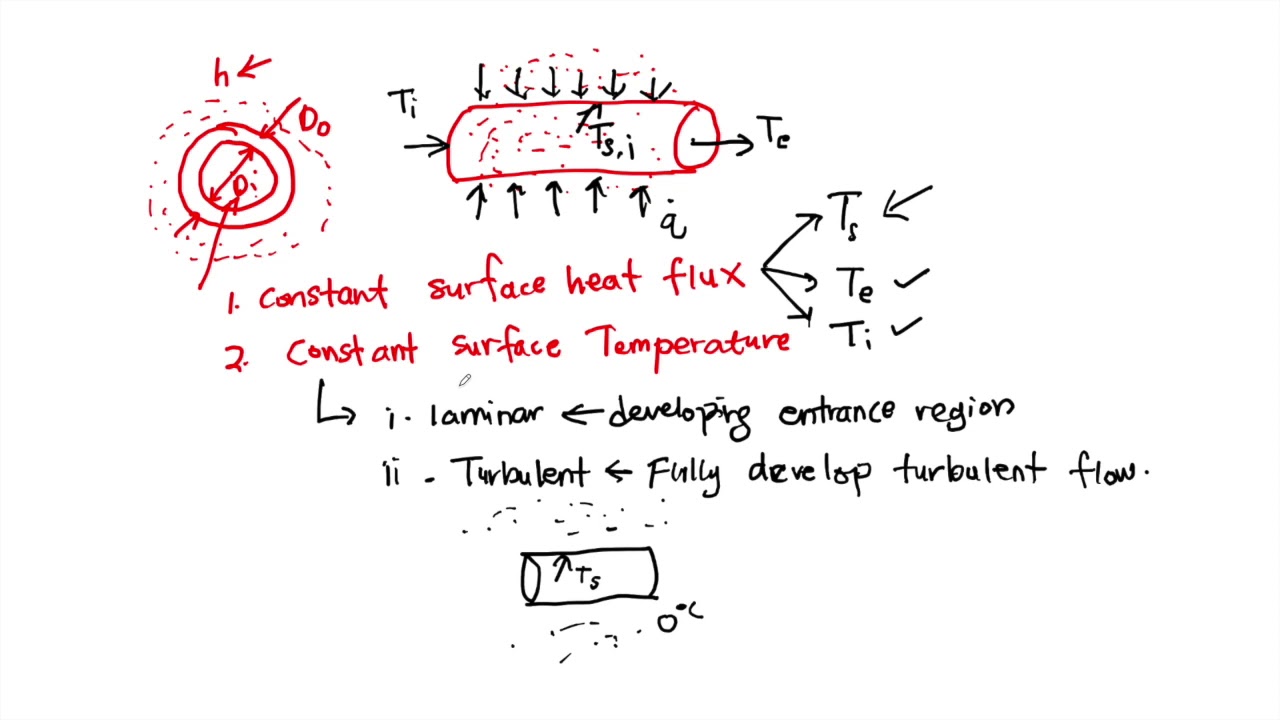 h
Do
Di
Ti
Ts,i
Te
q̇
Ts
1. Constant surface heat flux
Te ✓
2. Constant surface Temperature
Ti ✓
i. laminar ← developing entrance region
ii. Turbulent ← Fully develop turbulent flow.
Ts
0°C